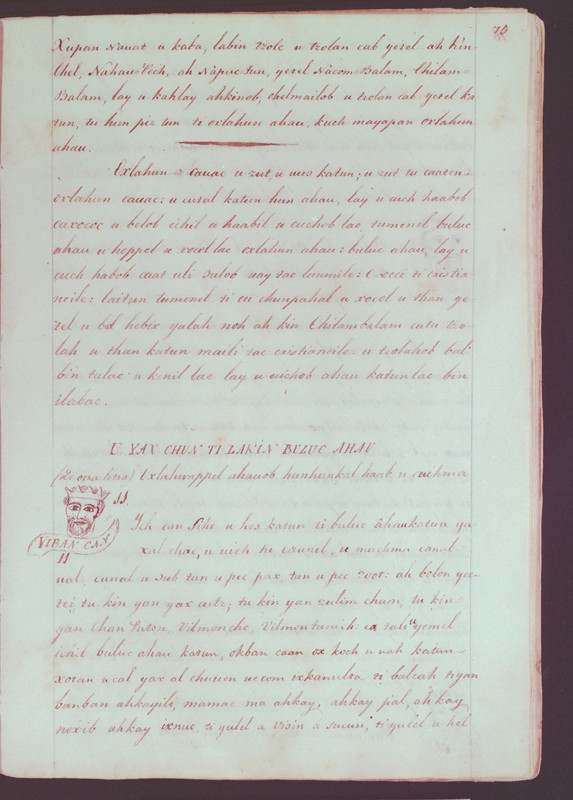 75
Xupan Nauat u kaba, labin tzolc u tzolan cab yetel ah kin-
Chel, Nahau Pech, ah Napuc tun, yetel Nacom-Balam, Chilam-
Balam, lay u kahlay ahkinob, chelmailob u tzolan cab yetel ka
tun, tu hun pez tun ti oxlahun ahau, kuch mayapan oxlahun
ahau.
Oxlahun cauac u zut, u uuo katun; u zut tu caaten-
oxlahun cauac: u cutal katun hun ahau, lay u cuch haabob
caxococ u belob ichil u haabil u cuchob lae, tumenel buluc
ahau u hoppel u xocol lae oxlahun ahau: buluc ahau, lay u
cuch habob caat uli sulob uay tac luumile: Occi ti cristia-
noile: laitun tumenel ti cu chunpahal u xocol u than ye-
tel u bel hebix yalah noh ah kin Chilambalam catu tzo-
lah u than katun maili tac cristianoile u tzolahob bal
bin talac u kinil lae lay u uichob ahau katun lae bin
ilabac.
U YAX CHUN TI LAKIN BULUC AHAU
Oxlahunppel ahauob hunhunkal haab u cuchma
11
Ych can Sihe u hes katun ti buluc ahaukatun ya
xal chac, u uich ti cannil, u machma canal
VIBAN CAX
11
ual, canal u sub tun u pec pax, tan u pec zoot: ah bolon yoc-
tei; tu kin yan yax cutz; tu kin yan zulim chan, tu kin-
yan Chan Puton, Vilmonche, Vilmontunich: ca tali u yemel
ichil buluc ahau katun, okban caan ox koch u uah katun-
xotan ucal yax al chuuen ucom ixkanulta ti balcah tiyan
banban ahkayili, mamac ma ahkay, ahkay pal, ah kay
noxib ahkay ixnuc, ti yulel a vitzin a sucun, ti yulel u hel